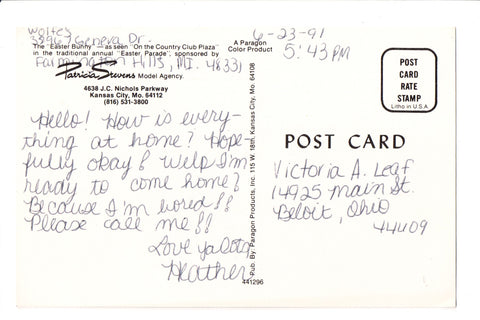 Walter
32967 Geneva Dr.
Farmington Hills, MI. 48331
The "Easter Bunny" — as seen "On the Country Club Plaza"
in the traditional annual "Easter Parade", sponsored by
Patricia Stevens Model Agency.
4638 J.C. Nichols Parkway
Kansas City, Mo. 64112
(816) 531-3800
Hello! How is every-
thing at home? Hope-
fully okay! Welp I'm
ready to come home!
Because I'm bored!!
Please call me!!
Love ya lots,
Heather
A Paragon
Color Product
Pub. By Paragon Products, Inc. 115 W. 18th, Kansas City, Mo. 64108
441296
6-23-91
5:43 PM
POST
CARD
RATE
STAMP
Litho in U.S.A.
POST CARD
Victoria A. Leaf
14925 Main St.
Beloit, Ohio
44609